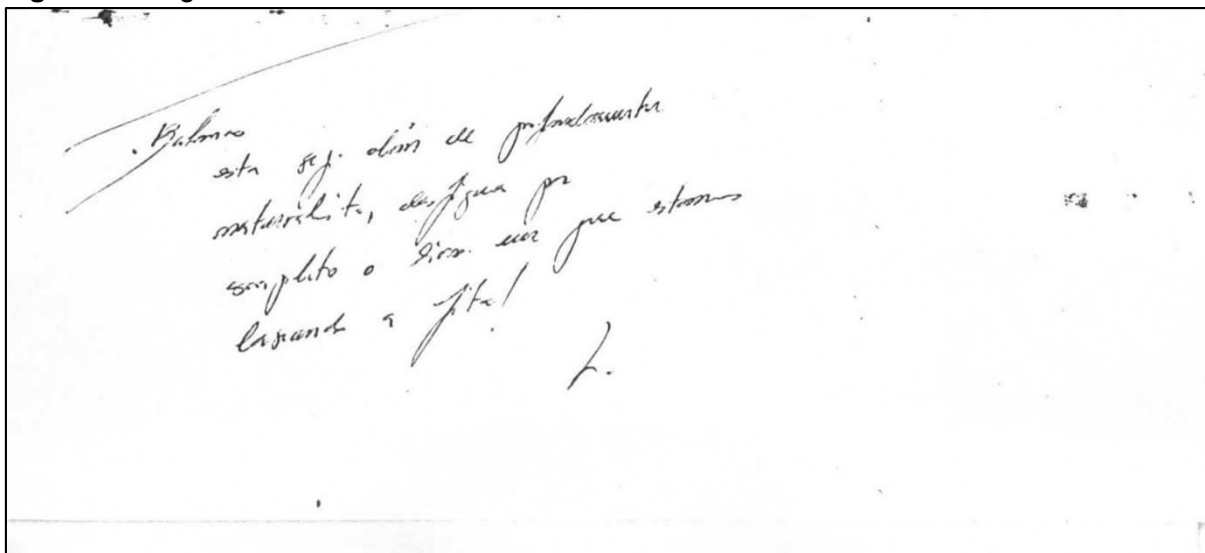 esta seq. além de profundamente
naturalista, desfigura por
completo o em que estamos
levando a fita!
L.